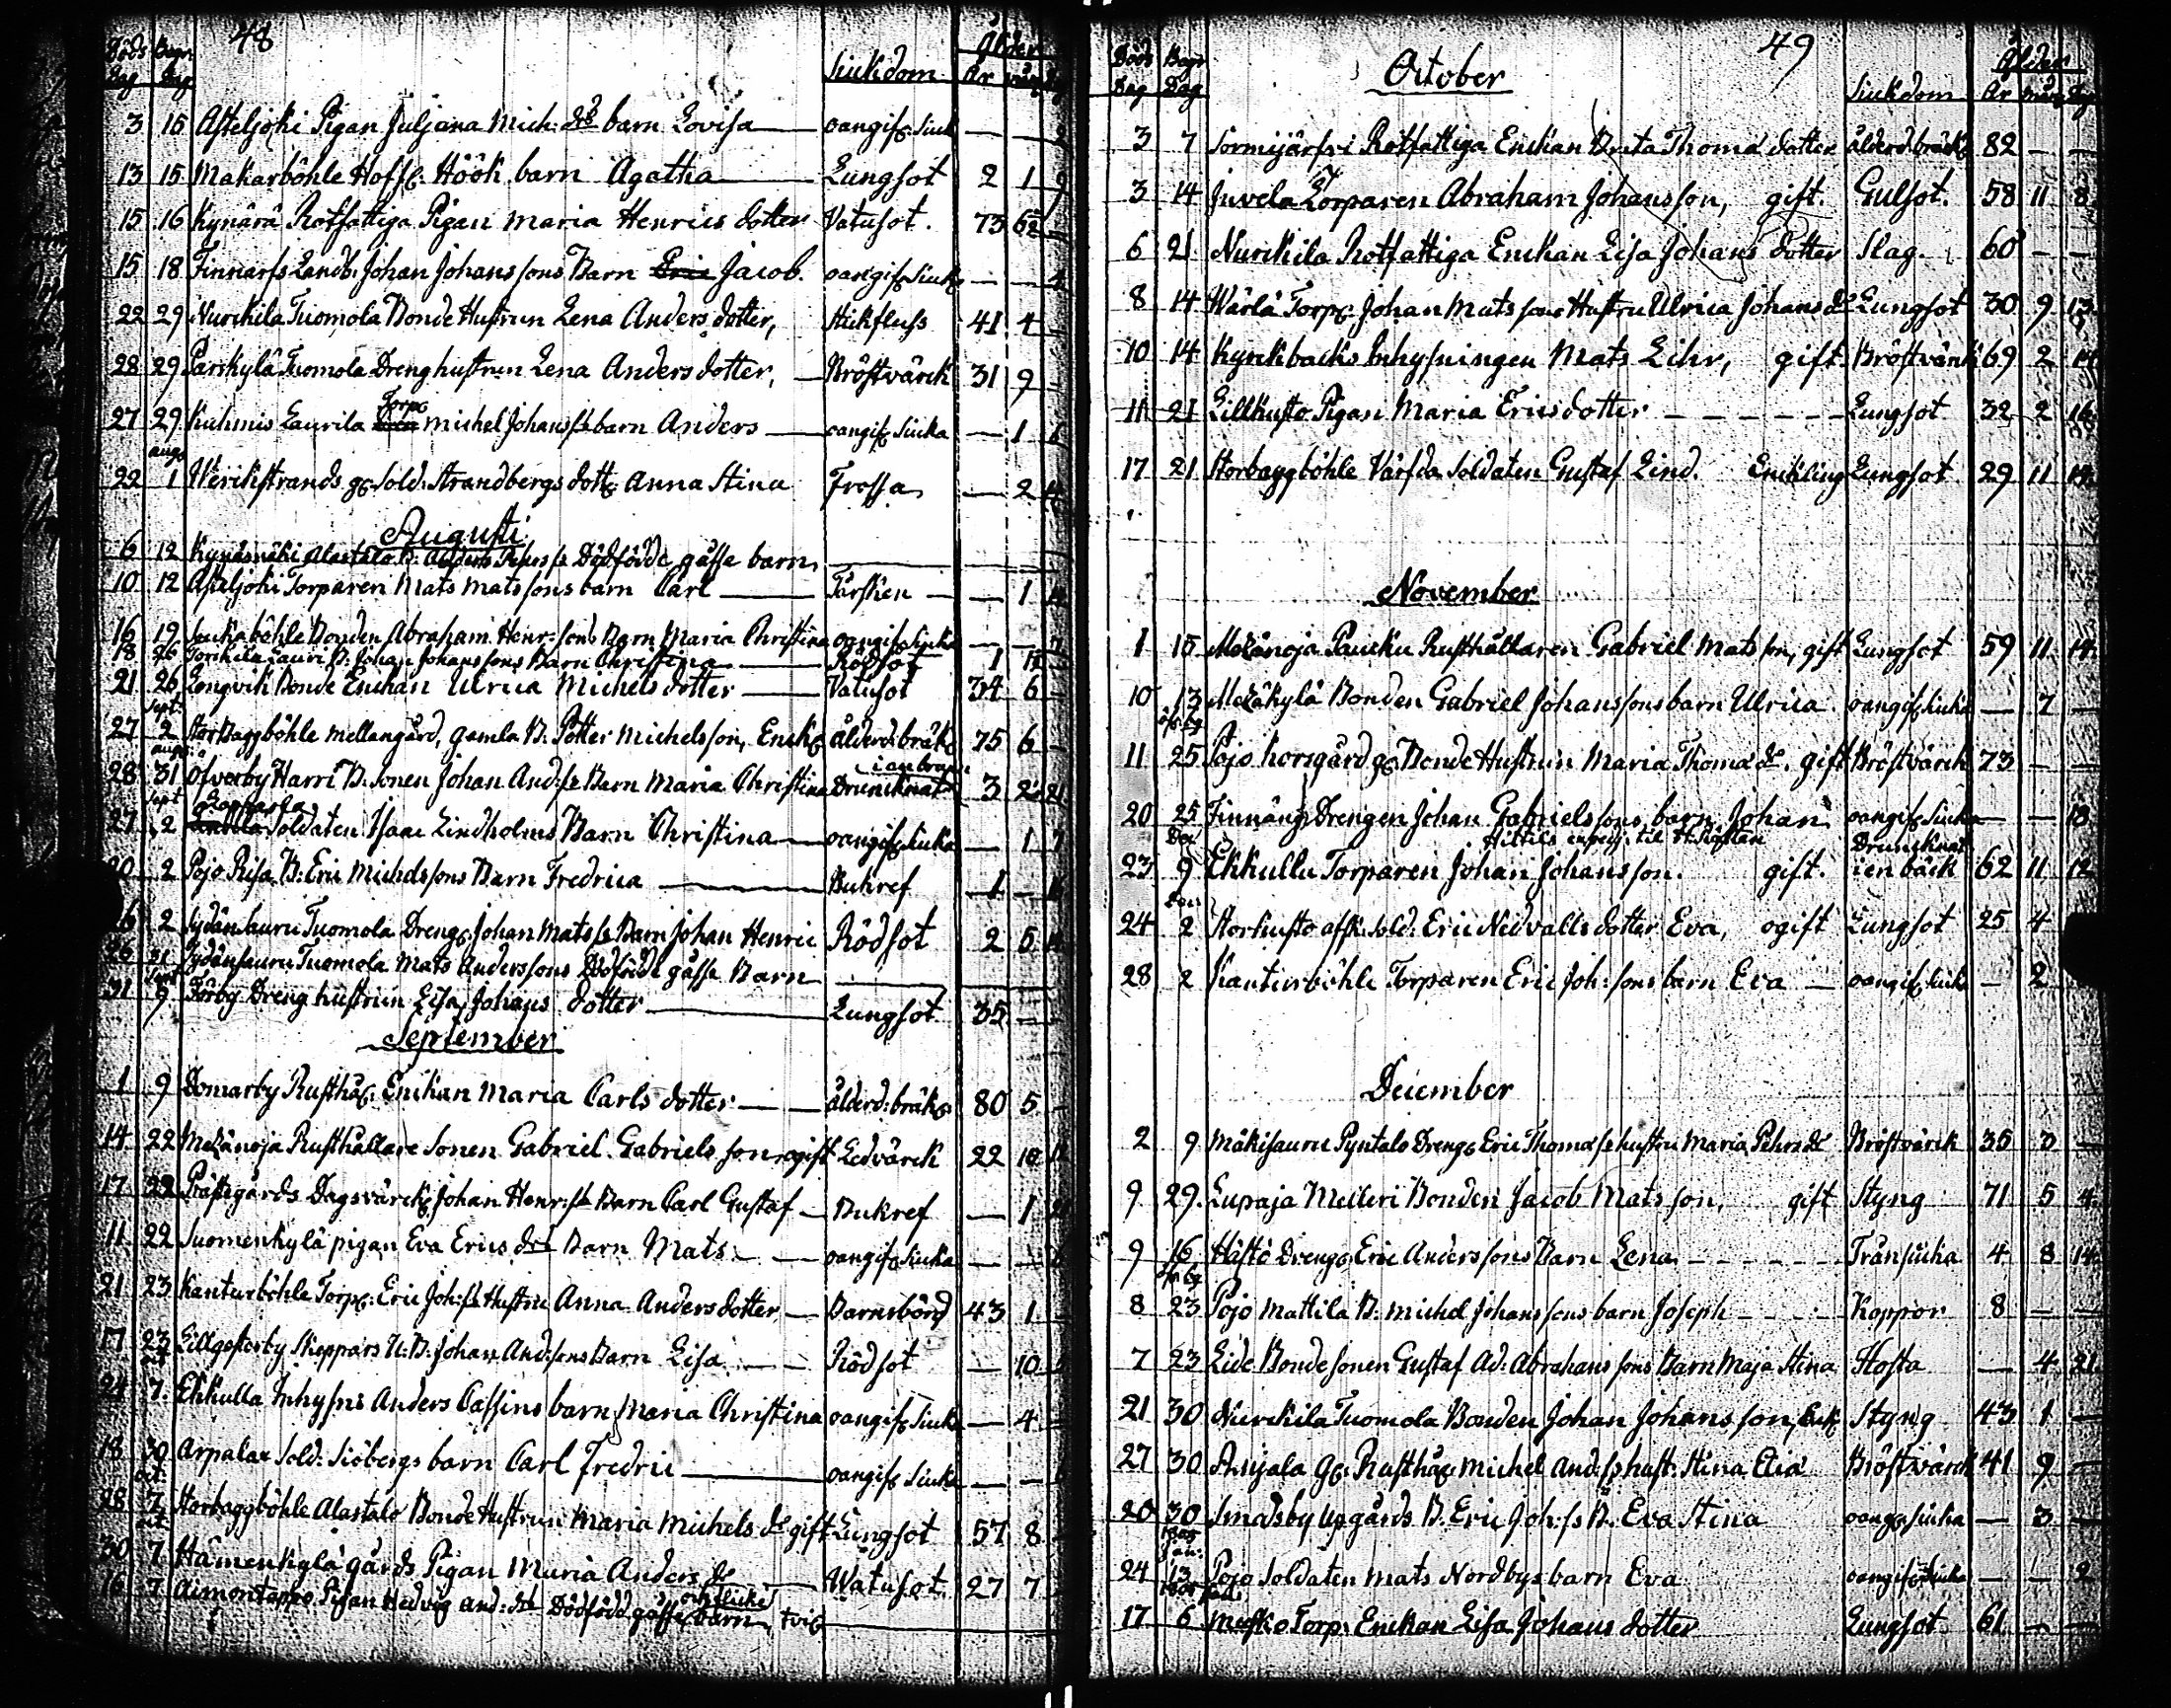 48
Döds Dag Begr. Dag Siukdom Ålder År mån
3 15 Asteljoki Pigan Juljana Mich: drs barn Lovisa oangif: Siuk
13 15 Makarböhle Hofsl. Höök barn Agatha Lungsot 2 1 9
15 16 Kynärä Rotfattiga Pigan Maria Henrics dotter Vatusot. 73 6½
15 18 Finnars Landb: Johan Johanssons Barn Eric Jacob. oangif: Siuk: 4
22 29 Nurckila Tuomola Bonde Hustrun Lena Anders dotter, Stickfluss 41 4
28 29 Parskylä Tuomola Dreng hustrun Lena Anders dotter, Bröstvärck 31 9
Torp:
27 29 Kuhmis Laurila Michel Johanss: barn Anders oangif: Siuka 1
aug:
22 1 Werckstrands g: Sold: Strandbergs dott: Anna Stina Frossa 2
Augusti
6 12 Kynäsmäki Alastalo B: Anders Pehrss: Dödfödde gåsse barn
10 12 Asteljoki Torparen Mats Matssons barn Carl Tårsken 1
16 19 böhle Bonden Abraham Henr:sons Barn Maria Christina oangif: Siuka
18 26 Torckila Lauri B: Johan Johanssons Barn Christina Rödsot 1
21 26 Längvik Bonde Enckan Ulrica Michels dotter Vatusot 34 6
Sept:
27 2 Stor Baggböhle Mellangård, gamla B: Petter Michelsson, Enck: ålderd:bräk: 75 6
aug:
28 31 Öfverby Harri B: Sonen Johan And:ss: Barn Maria Christina Druncknat i en brun 3 2 21
Sept
27 2 Soldaten Isaac Lindholms Barn Christina oangif: Siuka 1 7
20 2 Pojo Risa B: Eric Michelssons Barn Fredrica Bukref 1
2 Sydänlauri Tuomola Dreng: Johan Matss: Barn Johan Henric Rödsot 2 5
26 31 Sydänlauri Tuomola Mats Anderssons Dödfödde gåsse Barn
Sept
31 9 Förby Dreng hustrun Lisa Johans dotter Lungsot 35
September
1 9 Domarby Rusthåll: Enckan Maria Carls dotter ålderd:bräk: 80 5
14 22 Meränoja Rusthållare Sonen Gabriel Gabriels son ogift Ledvärck 22 10
17 22 Prästgårds Dagsvärck: Johan Henr:ss: Barn Carl Gustaf Bukref 1
11 22 Suomenkylä pigan Eva Erics drs Barn Mats oangif: Siuka
21 23 Kanturböhle Torp: Eric Joh:ss: Hustru Anna Anders dotter Barnsbörd 43 1
17 23 Lillgesterby Skeppars N: B: Johan And:sons Barn Lisa Rödsot 10
oct
24 7 Ekkulla Inhyses Anders Cassins barn Maria Christina oangif: Siuka 4
18 30 Arpalax Sold: Siöbergs barn Carl Fredric oangif: Siuka
oct:
28 7 Storbaggböhle Alastalo Bonde Hustrun Maria Michels dr gift Lungsot 57 8
oct:
30 7 Hämenkylä gårds Pigan Maria Anders dr Watusot 27 7
16 7 Aimontappo Pigan Hedvig And: dr Dödfödd gåsse och flicke barn, tvil:
49
Döds Dag Begr Dag October Siukdom Ålder År Mån Dag
3 7 Sormijärfvi Rotfattiga Enckan Brita Thomæ dotter ålderd:bräck: 82
3 14 Juvela Torparen Abraham Johansson, gift. Gulsot. 58 11 8
6 21 Nurckila Rotfattiga Enckan Lisa Johans dotter Slag. 60
8 14 Wärlä Torp: Johan Matssons Hustru Ulrica Johans dr Lungsot 30 9 13
10 14 Kyrckbacks Inhysningen Mats Lihr, gift. Bröstvärck 69 2 14
11 21 Lillkusto Pigan Maria Ericsdotter Lungsot 32 2 16
17 21 Storbaggböhle Värfda Soldaten Gustaf Lind. Enckling Lungsot 29 11
November
1 15 Meränoja Paucku Rusthållaren Gabriel Mats son, gift Lungsot 59 11 14
10 13 Meräkylä Bonden Gabriel Johanssons barn Ulrica oangif: Siuka 7
11 25 Pojo Korsgård g: Bonde Hustrun Maria Thomæ dr. gift Bröstvärck 73
20 25 Finnängs Drengen Johan Gabrielssons barn Johan oangif: Siuka 18
Dec
23 9 Ekkulla Torparen Johan Johansson. gift. Druncknat i en bäck 62 11 12
24 2 Storkusto afsk: Sold: Eric Nedvalls dotter Eva, ogift Lungsot 25 4
28 2 Kanturböhle Torparen Eric Joh:sons barn Eva oangif: Siuka 2
December
2 9 Mäkisauru Pyntalo Dreng: Eric Thomæ ss: hustru Maria Pehrs dr Bröstvärck 35 3
9 29. Lupaja Meileri Bonden Jacob Mats son, gift Styng 71 5 4
9 16 Hästö Dreng: Eric Anderssons Barn Lena Trånsiuka 4 8 14
8 23 Pojo Mattila B: Michel Johanssons barn Joseph Koppor 8
7 23 Lide Bonde Sonen Gustaf Ad: Abrahamssons Barn Maja Stina Hosta 4 21
21 30 Nurckila Tuomola Bonden Johan Johansson, Enk: Styng 43 1
27 30 Anjala g: Rusthåll: Michel And:ss: hust: Stina Bröstvärck 41 9
20 30 Smedsby Upgårds B: Eric Joh:ss B: Eva Stina oang: Siuka 3
Jan:
24 13 Pojo Soldaten Mats Nordbys barn Eva oangif: Siuka 2
17 6 Torp: Enckan Lisa Johans dotter Lungsot 61